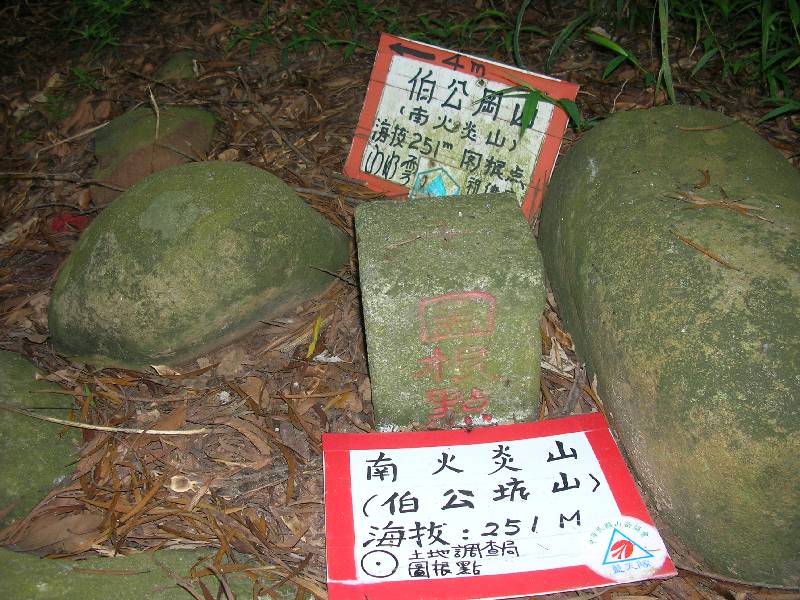 4m
伯公崗山
(南火炎山)
海拔251m 圖根點
圖根點
南火炎山
(伯公坑山)
海拔:251M
土地調查局
圖根點
藍天隊